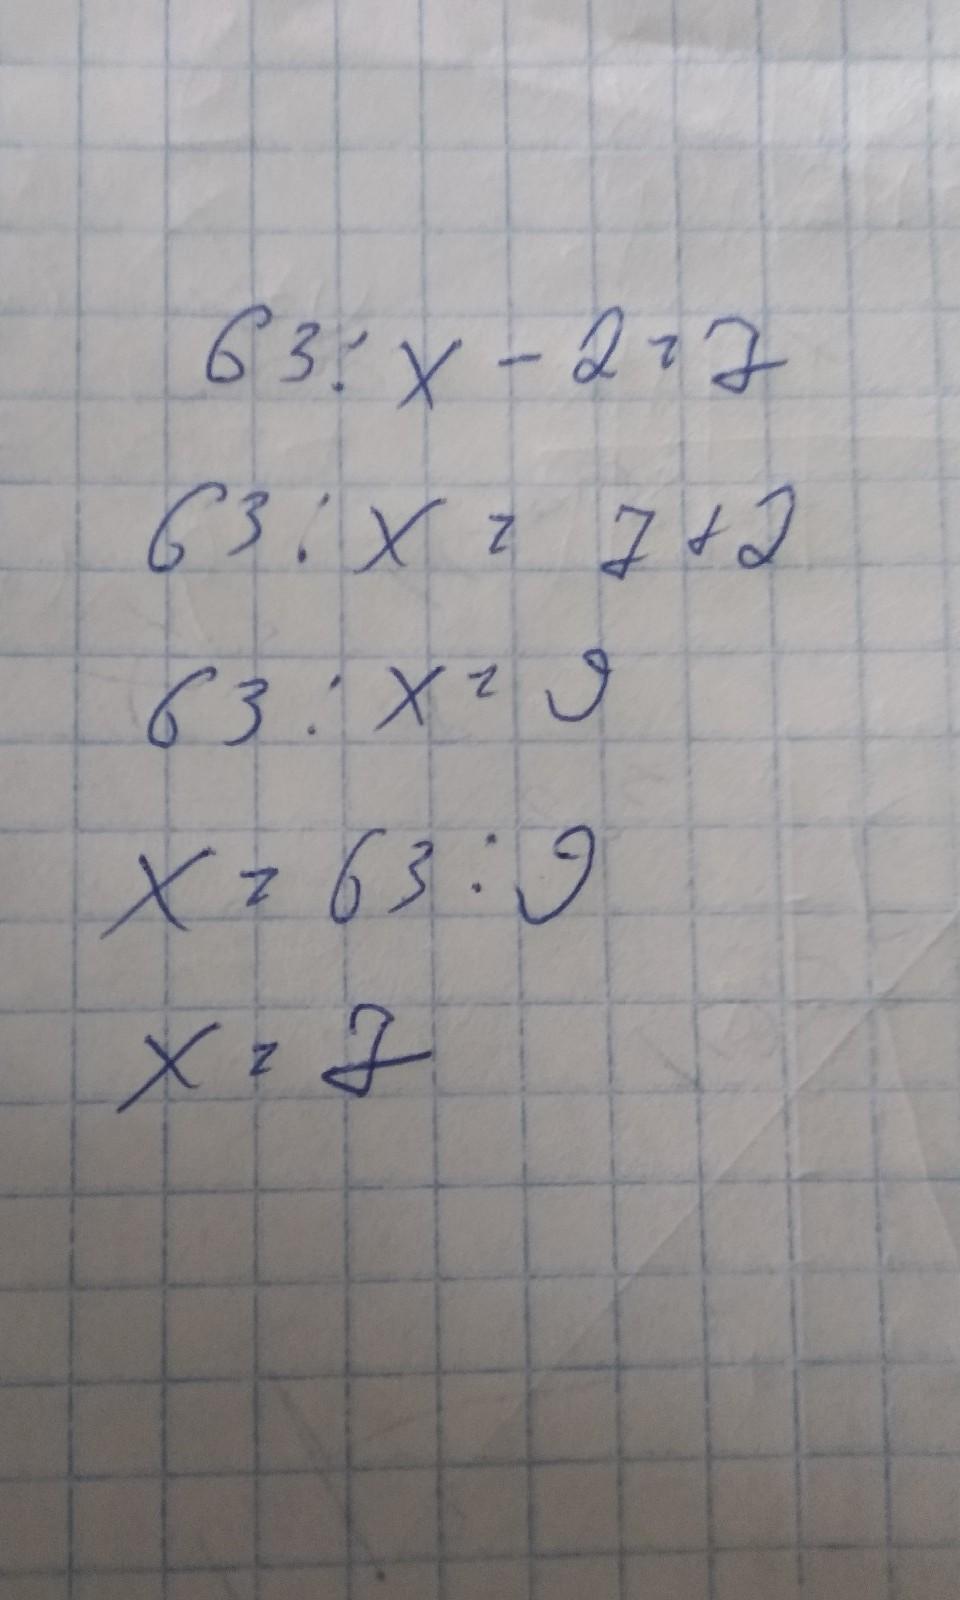 63 : x - 2 = 7
63 : x = 7 + 2
63 : x = 9
x = 63 : 9
x = 7